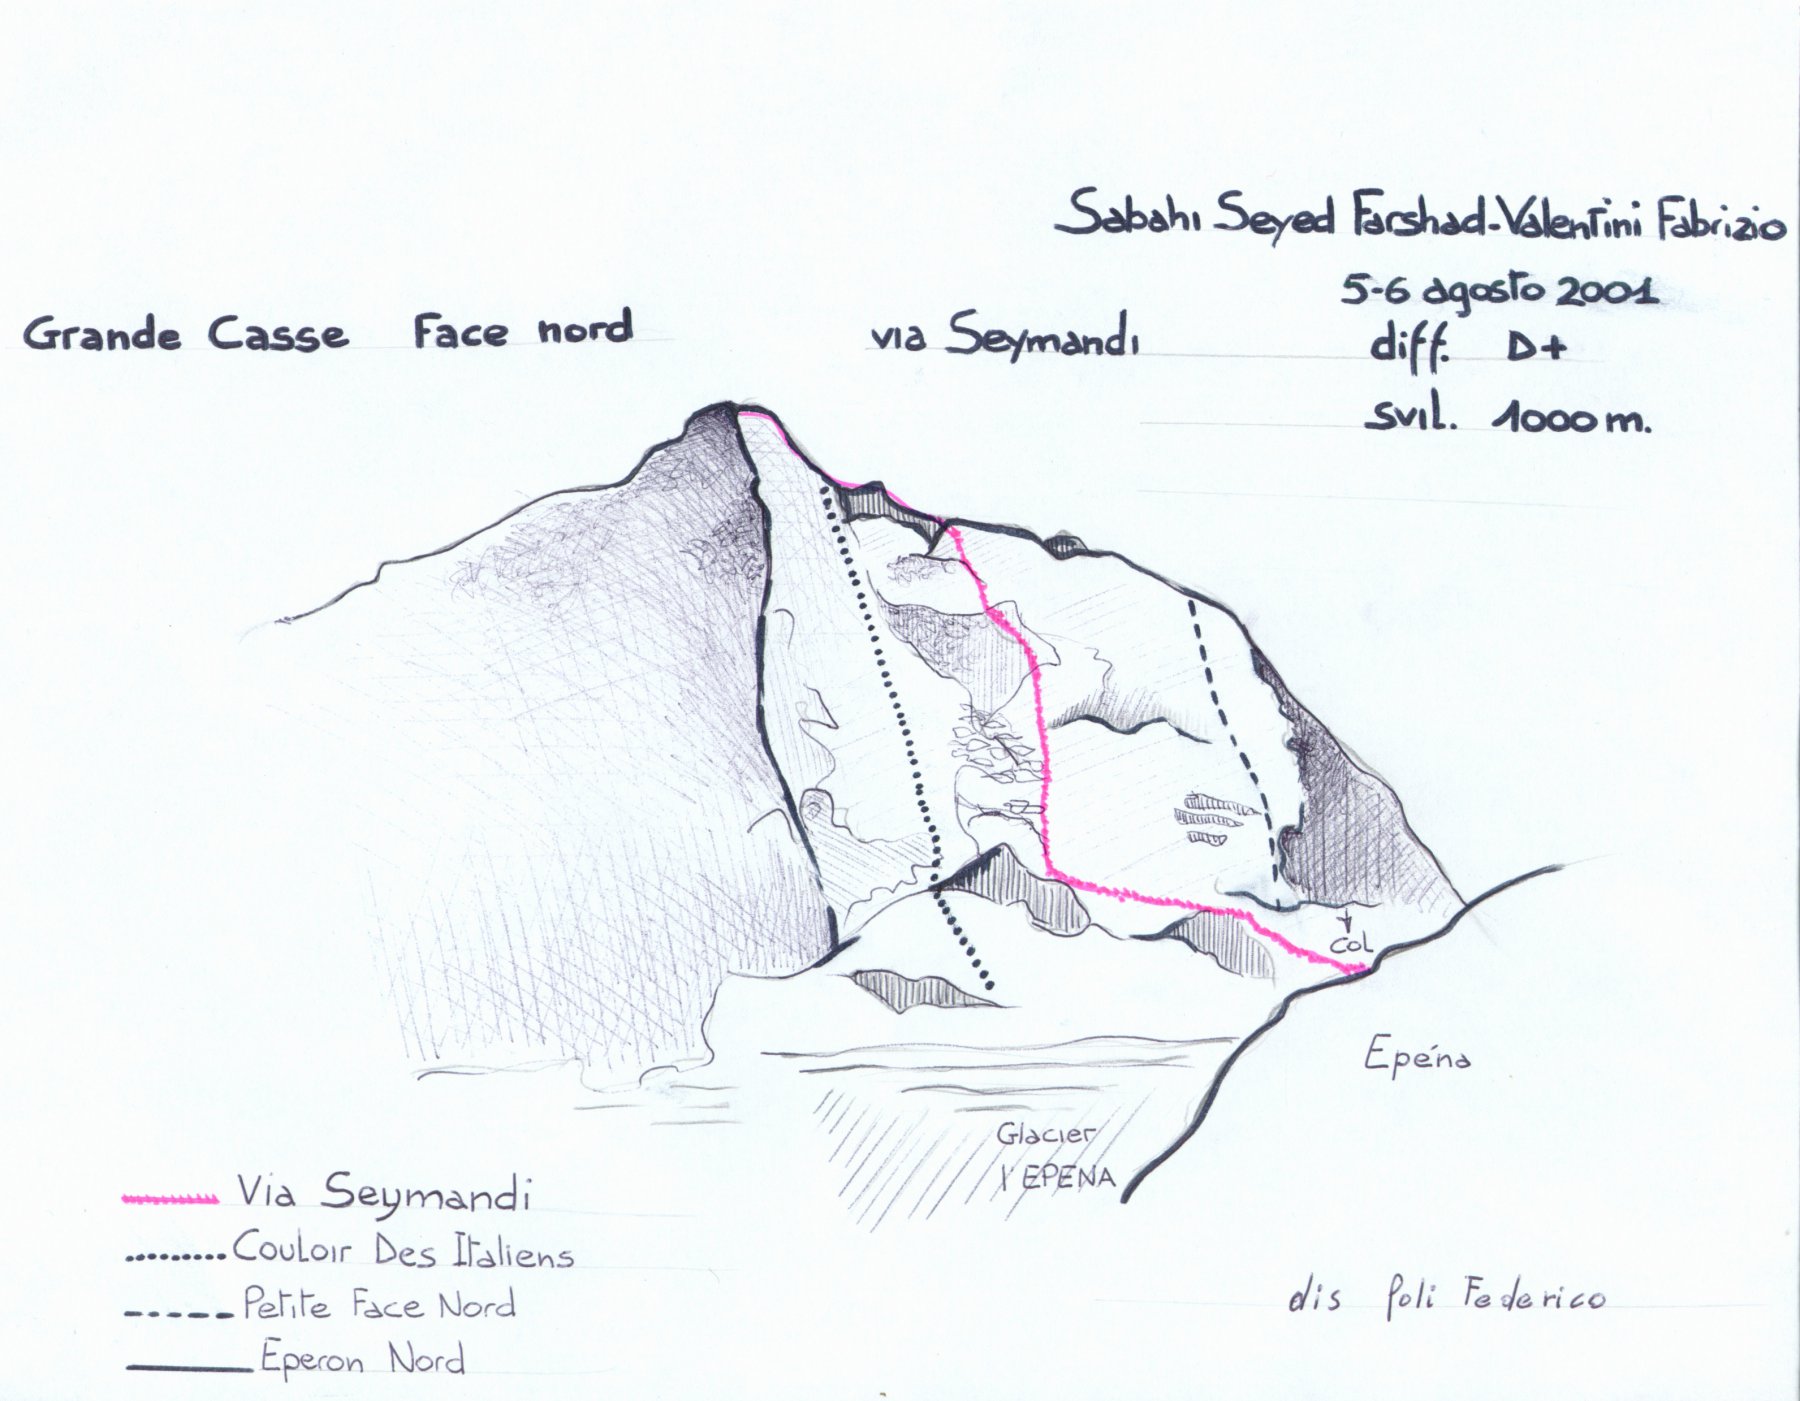 Sabahi Seyed Farshad-Valentini Fabrizio
5-6 agosto 2001
Grande Casse Face nord via Seymandi
diff. D+
svil. 1000 m.
col
Epéna
Glacier
EPENA
Via Seymandi
Couloir Des Italiens
Petite Face Nord
Eperon Nord
dis Poli Federico